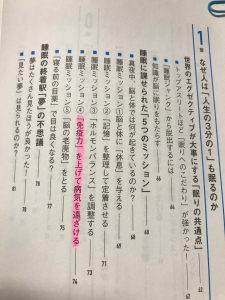 1章 なぜ人は「人生の3分の1」も眠るのか
世界のエグゼクティブが大事にする「眠りの共通点」
トップアスリートほど「眠りへのこだわり」が強かった！
知識が脳に眠りをもたらす
睡眠に課せられた「5つのミッション」
真夜中、脳と体では何が起きているのか？
睡眠ミッション① 脳と体に「休息」を与える
睡眠ミッション②「記憶」を整理して定着させる
睡眠ミッション③「ホルモンバランス」を調整する
睡眠ミッション④「免疫力」を上げて病気を遠ざける
睡眠ミッション⑤「脳の老廃物」をとる
「寝る前の目薬」で目は良くなる？
睡眠の終着駅「夢」の不思議
夢はたくさん見たほうが良かった！
「見たい夢」は見られるのか？